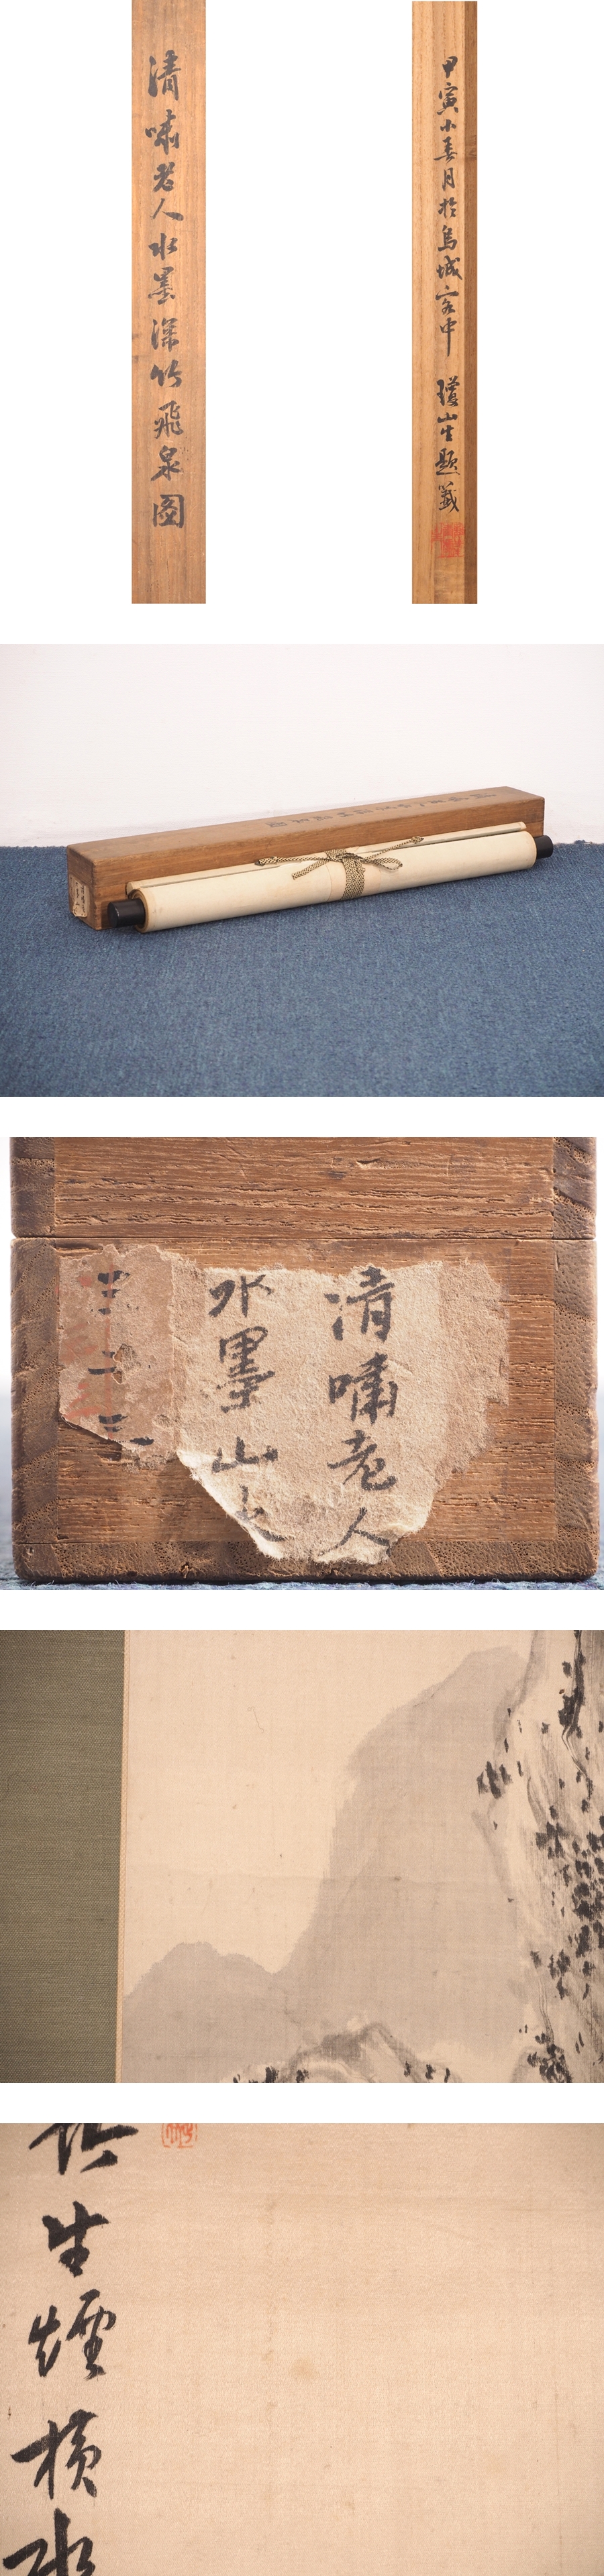 清嘯老人水墨深竹飛泉圖
甲寅小春月於烏城客中 瓊山生題籤
清嘯老人
水墨山水
二三
竹生煙橫水